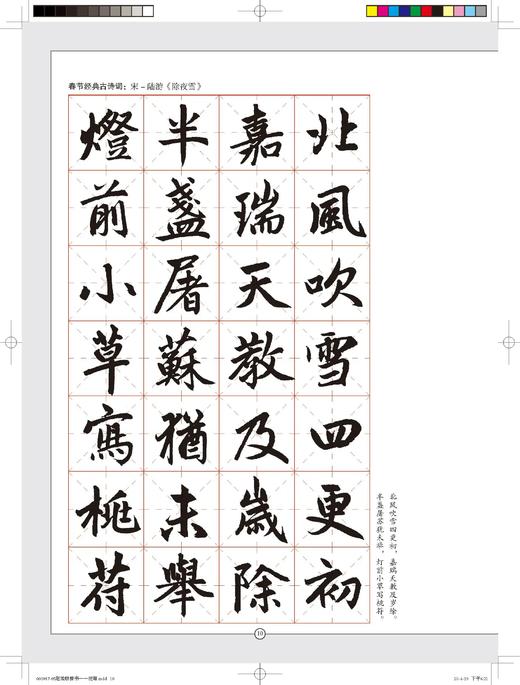 春节经典古诗词：宋－陆游《除夜雪》
北風吹雪四更初
嘉瑞天教及歲除
半盞屠蘇猶未舉
燈前小草寫桃符
北风吹雪四更初，嘉瑞天教及岁除。
半盏屠苏犹未举，灯前小草写桃符。
10